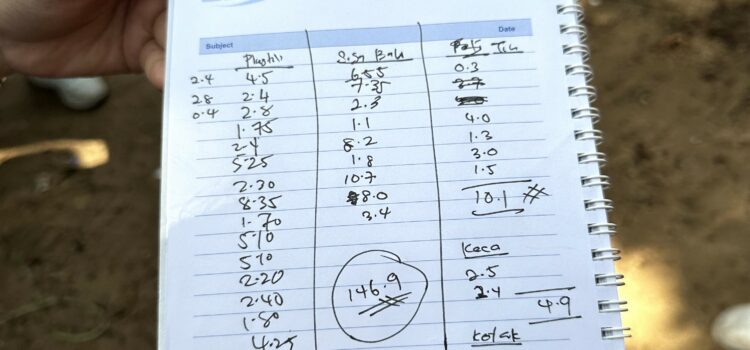 Subject
Date
Plastik
2.4 4.5
28 2.4
0.4 2.8
1.75
2.4
5.25
2.30
8.35
1.70
5.10
5.10
2.20
2.40
1.80
4.25
6.55
7.35
2.3
1.1
8.2
1.8
10.7
8.0
3.4
146.9
Tin
0.3
4.0
1.3
3.0
1.5
10.1
Kaca
2.5
2.4
4.9
Kotak